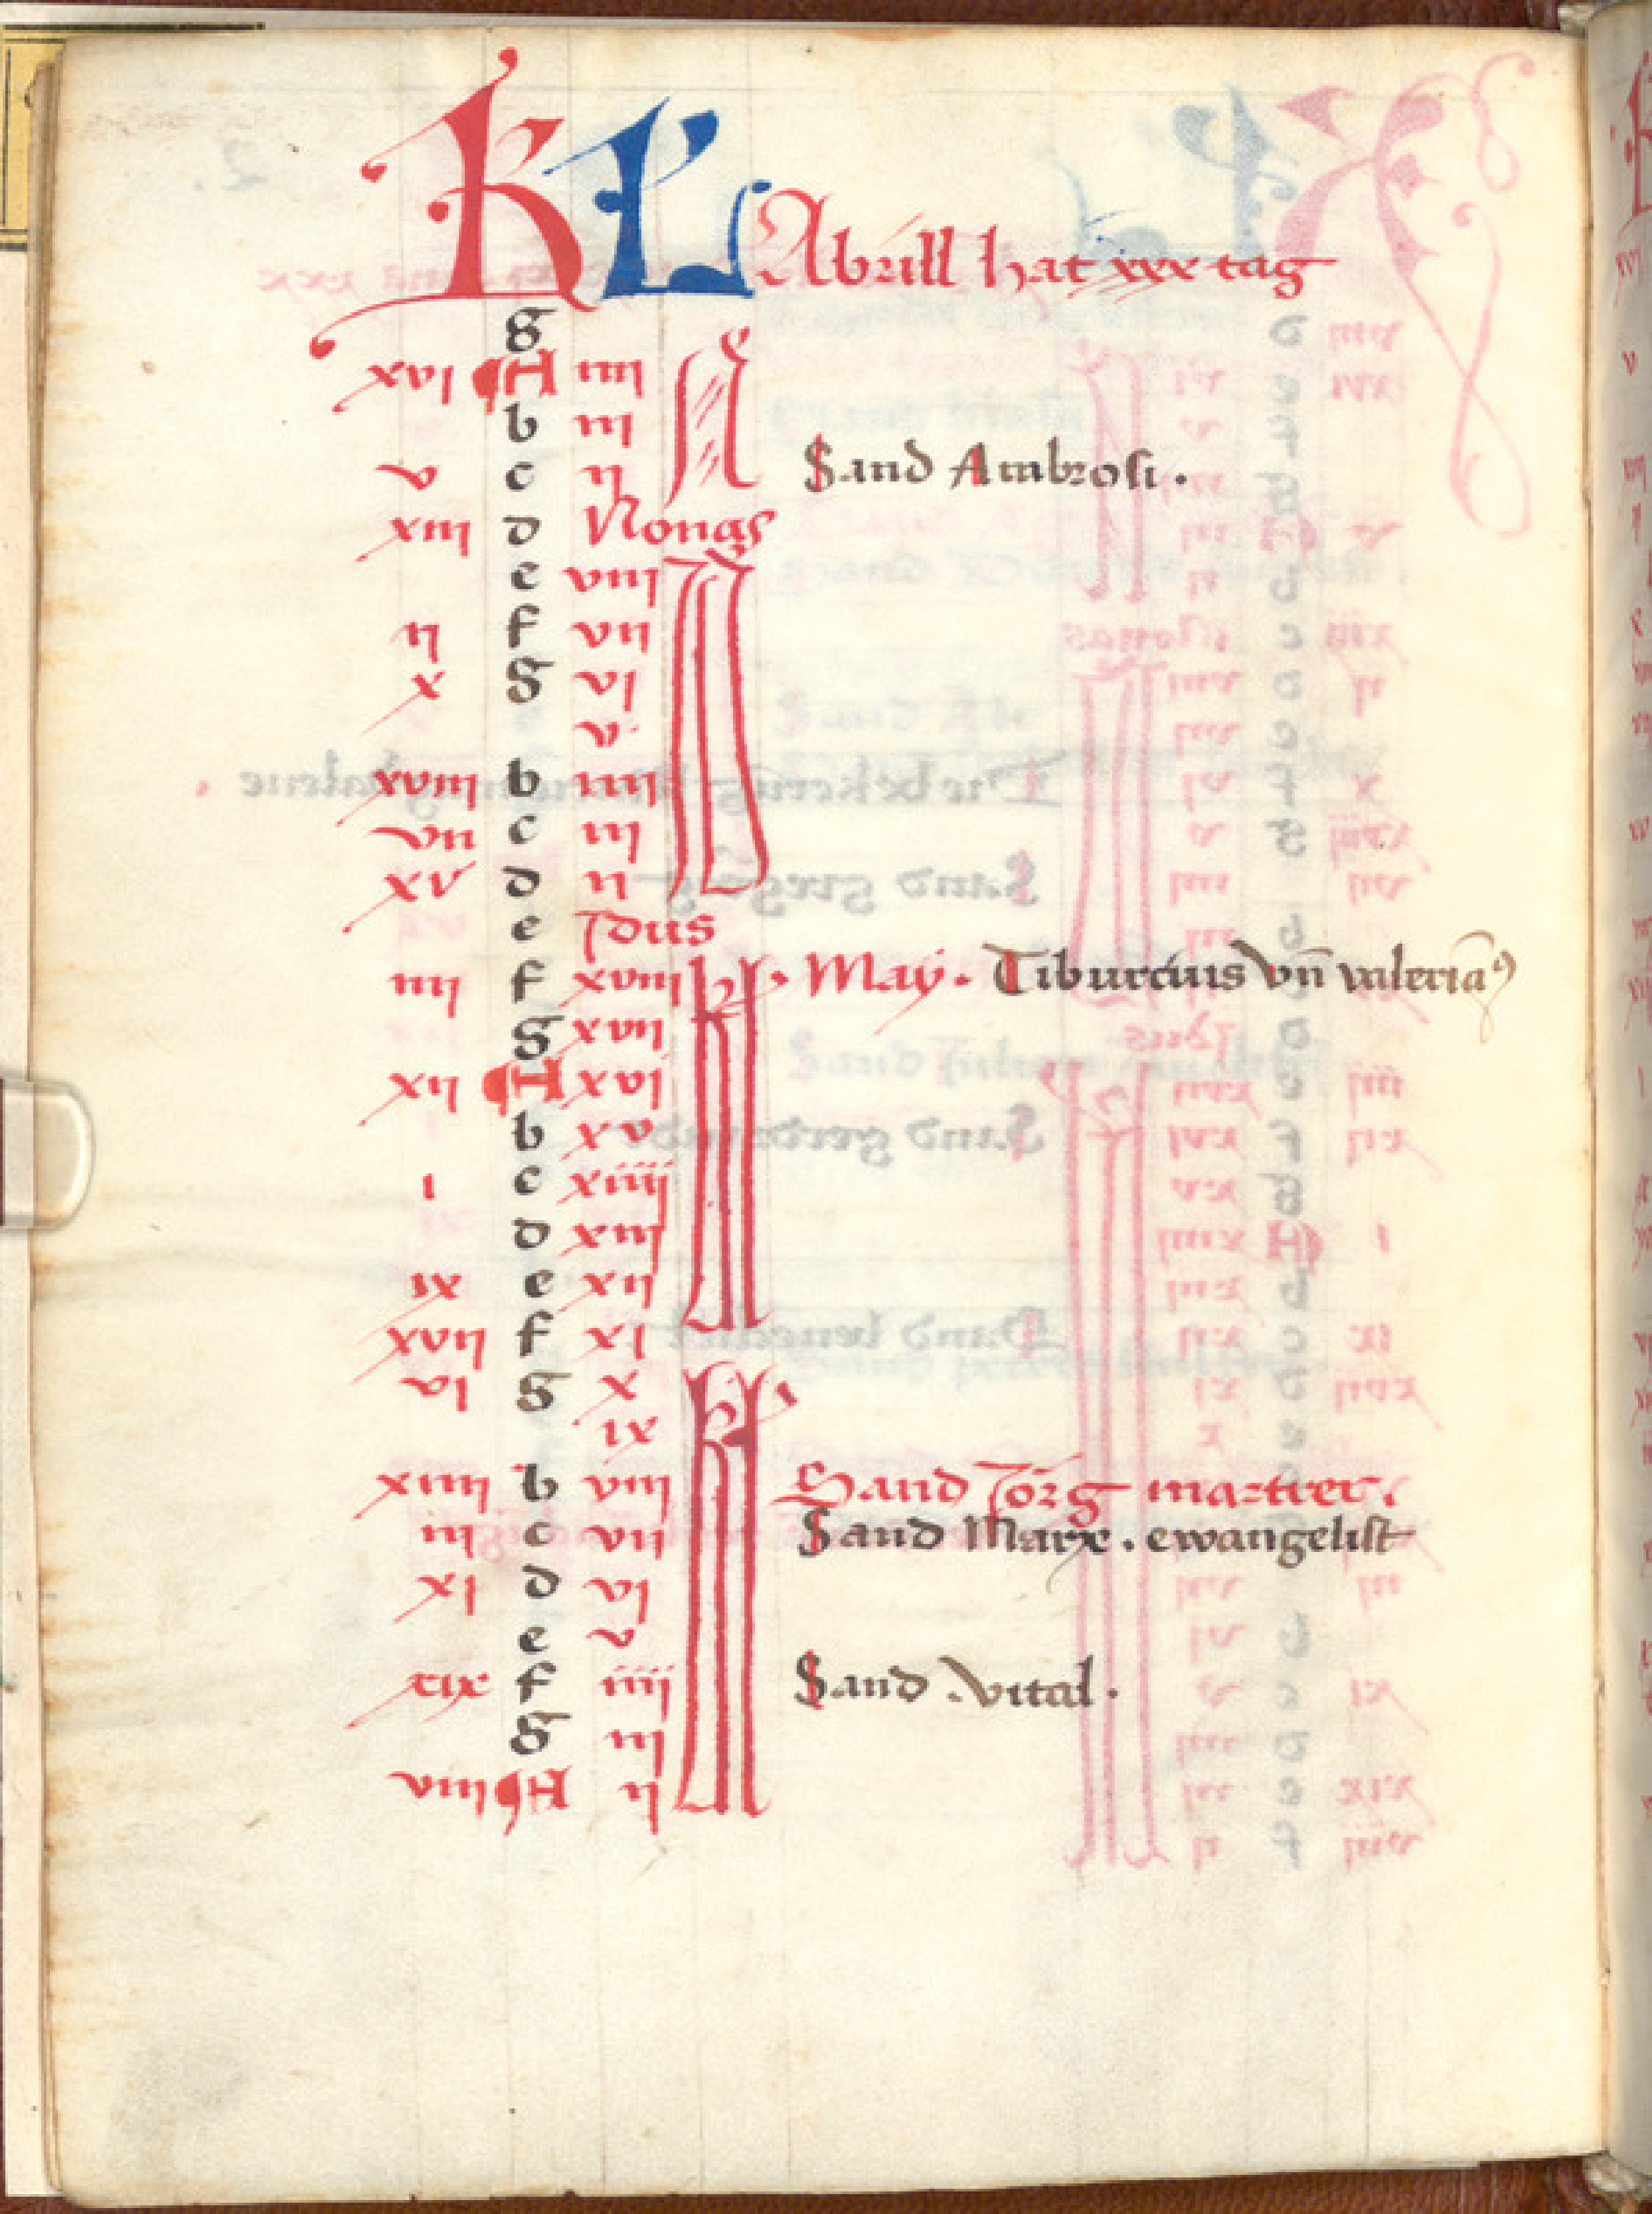 KL Abrill hat xxx tag
g
xvi A iiii N
b iii
v c ii Sand Ambrosi.
xiii d Nonas
e viii Id
ii f vii
x g vi
v
xviii b iiii
vii c iii
xv d ii
e Idus
iiii f xviii kl. May. Tiburcius vn̄ valeriāꝰ
g xvii
xii A xvi
b xv
i c xiiii
d xiii
ix e xii
xvii f xi
vi g x kl
ix
xiiii b viii Sand Jörg martrer.
iii c vii Sand Marx. ewangelist
xi d vi
e v
xix f iiii Sand vital.
g iii
viii A ii